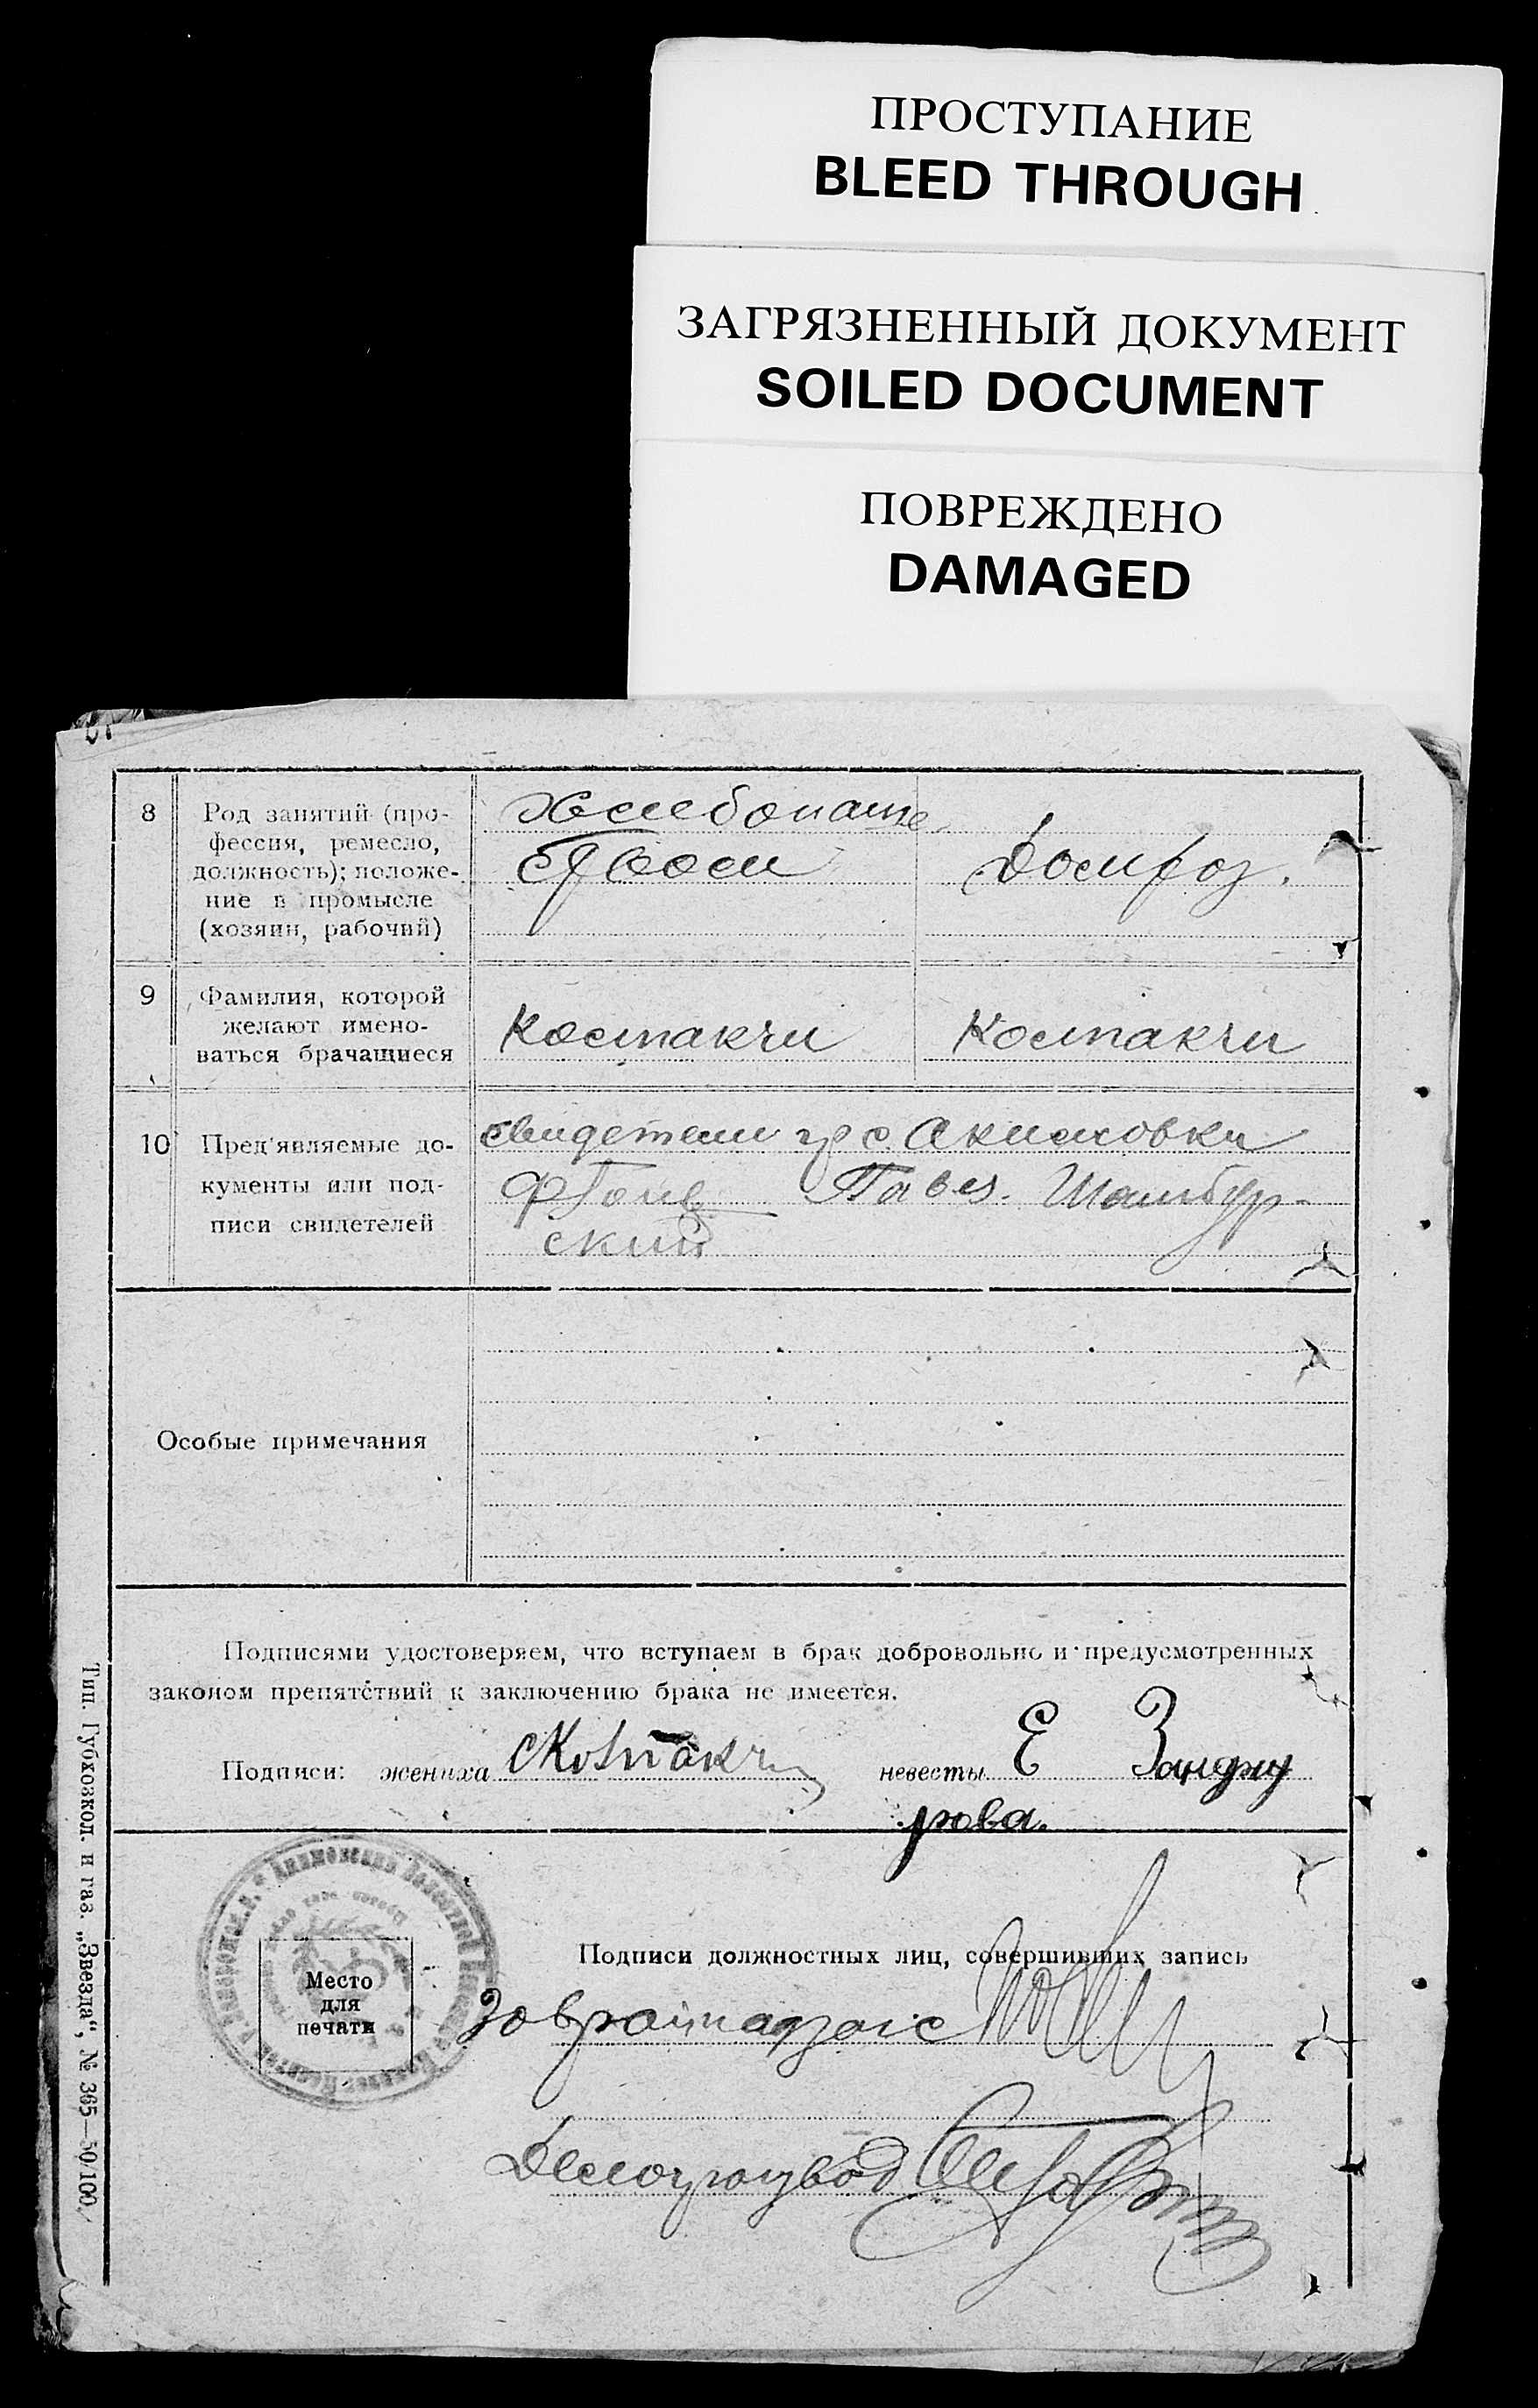 ПРОСТУПАНИЕ
BLEED THROUGH
ЗАГРЯЗНЕННЫЙ ДОКУМЕНТ
SOILED DOCUMENT
ПОВРЕЖДЕНО
DAMAGED
8
Род занятий (про-
фессия, ремесло,
должность); положе-
ние в промысле
(хозяин, рабочий)
Хлебопаше
Домхоз.
9
Фамилия, которой
желают имено-
ваться брачащиеся
Костакчи
Костакчи
10
Пред'являемые до-
кументы или под-
писи свидетелей
Свидетели гр с. Акимовки
Павел Шамбур-
ский
Особые примечания
Подписями удостоверяем, что вступаем в брак добровольно и предусмотренных
законом препятствий к заключению брака не имеется.
Подписи: жениха
невесты Е Занджу
рова.
Место
для
печати
Подписи должностных лиц, совершивших запись
Завройподзагс
Делопроизвод
Тип. Губхозкол. и газ. „Звезда“, № 365—50/100.